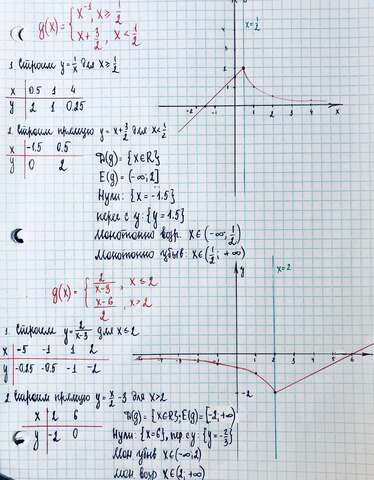 g(x) = { x⁻¹, x ≥ 1/2
x + 3/2, x < 1/2
x = 1/2
1. Строим y = 1/x для x ≥ 1/2
x 0.5 1 4
y 2 1 0.25
2. Строим прямую y = x + 3/2 для x < 1/2
x -1.5 0.5
y 0 2
D(g) = {x∈R}
E(g) = (-∞; 2]
Нули: {x = -1.5}
перес с y: {y = 1.5}
Монотонно возр. x∈(-∞; 1/2)
Монотонно убыв: x∈(1/2; +∞)
g(x) = { 2/(x-3), x ≤ 2
(x-6)/2, x > 2
y
x = 2
1. Строим y = 2/(x-3) для x ≤ 2
x -5 -1 1 2
y -0.25 -0.5 -1 -2
-2
2 Строим прямую y = x/2 - 3 для x > 2
x 2 6
y -2 0
D(g) = {x∈R}; E(g) = [-2; +∞)
Нули: {x = 6}, пер с y: {y = -2/3}
Мон убыв x∈(-∞; 2)
Мон возр x∈(2; +∞)